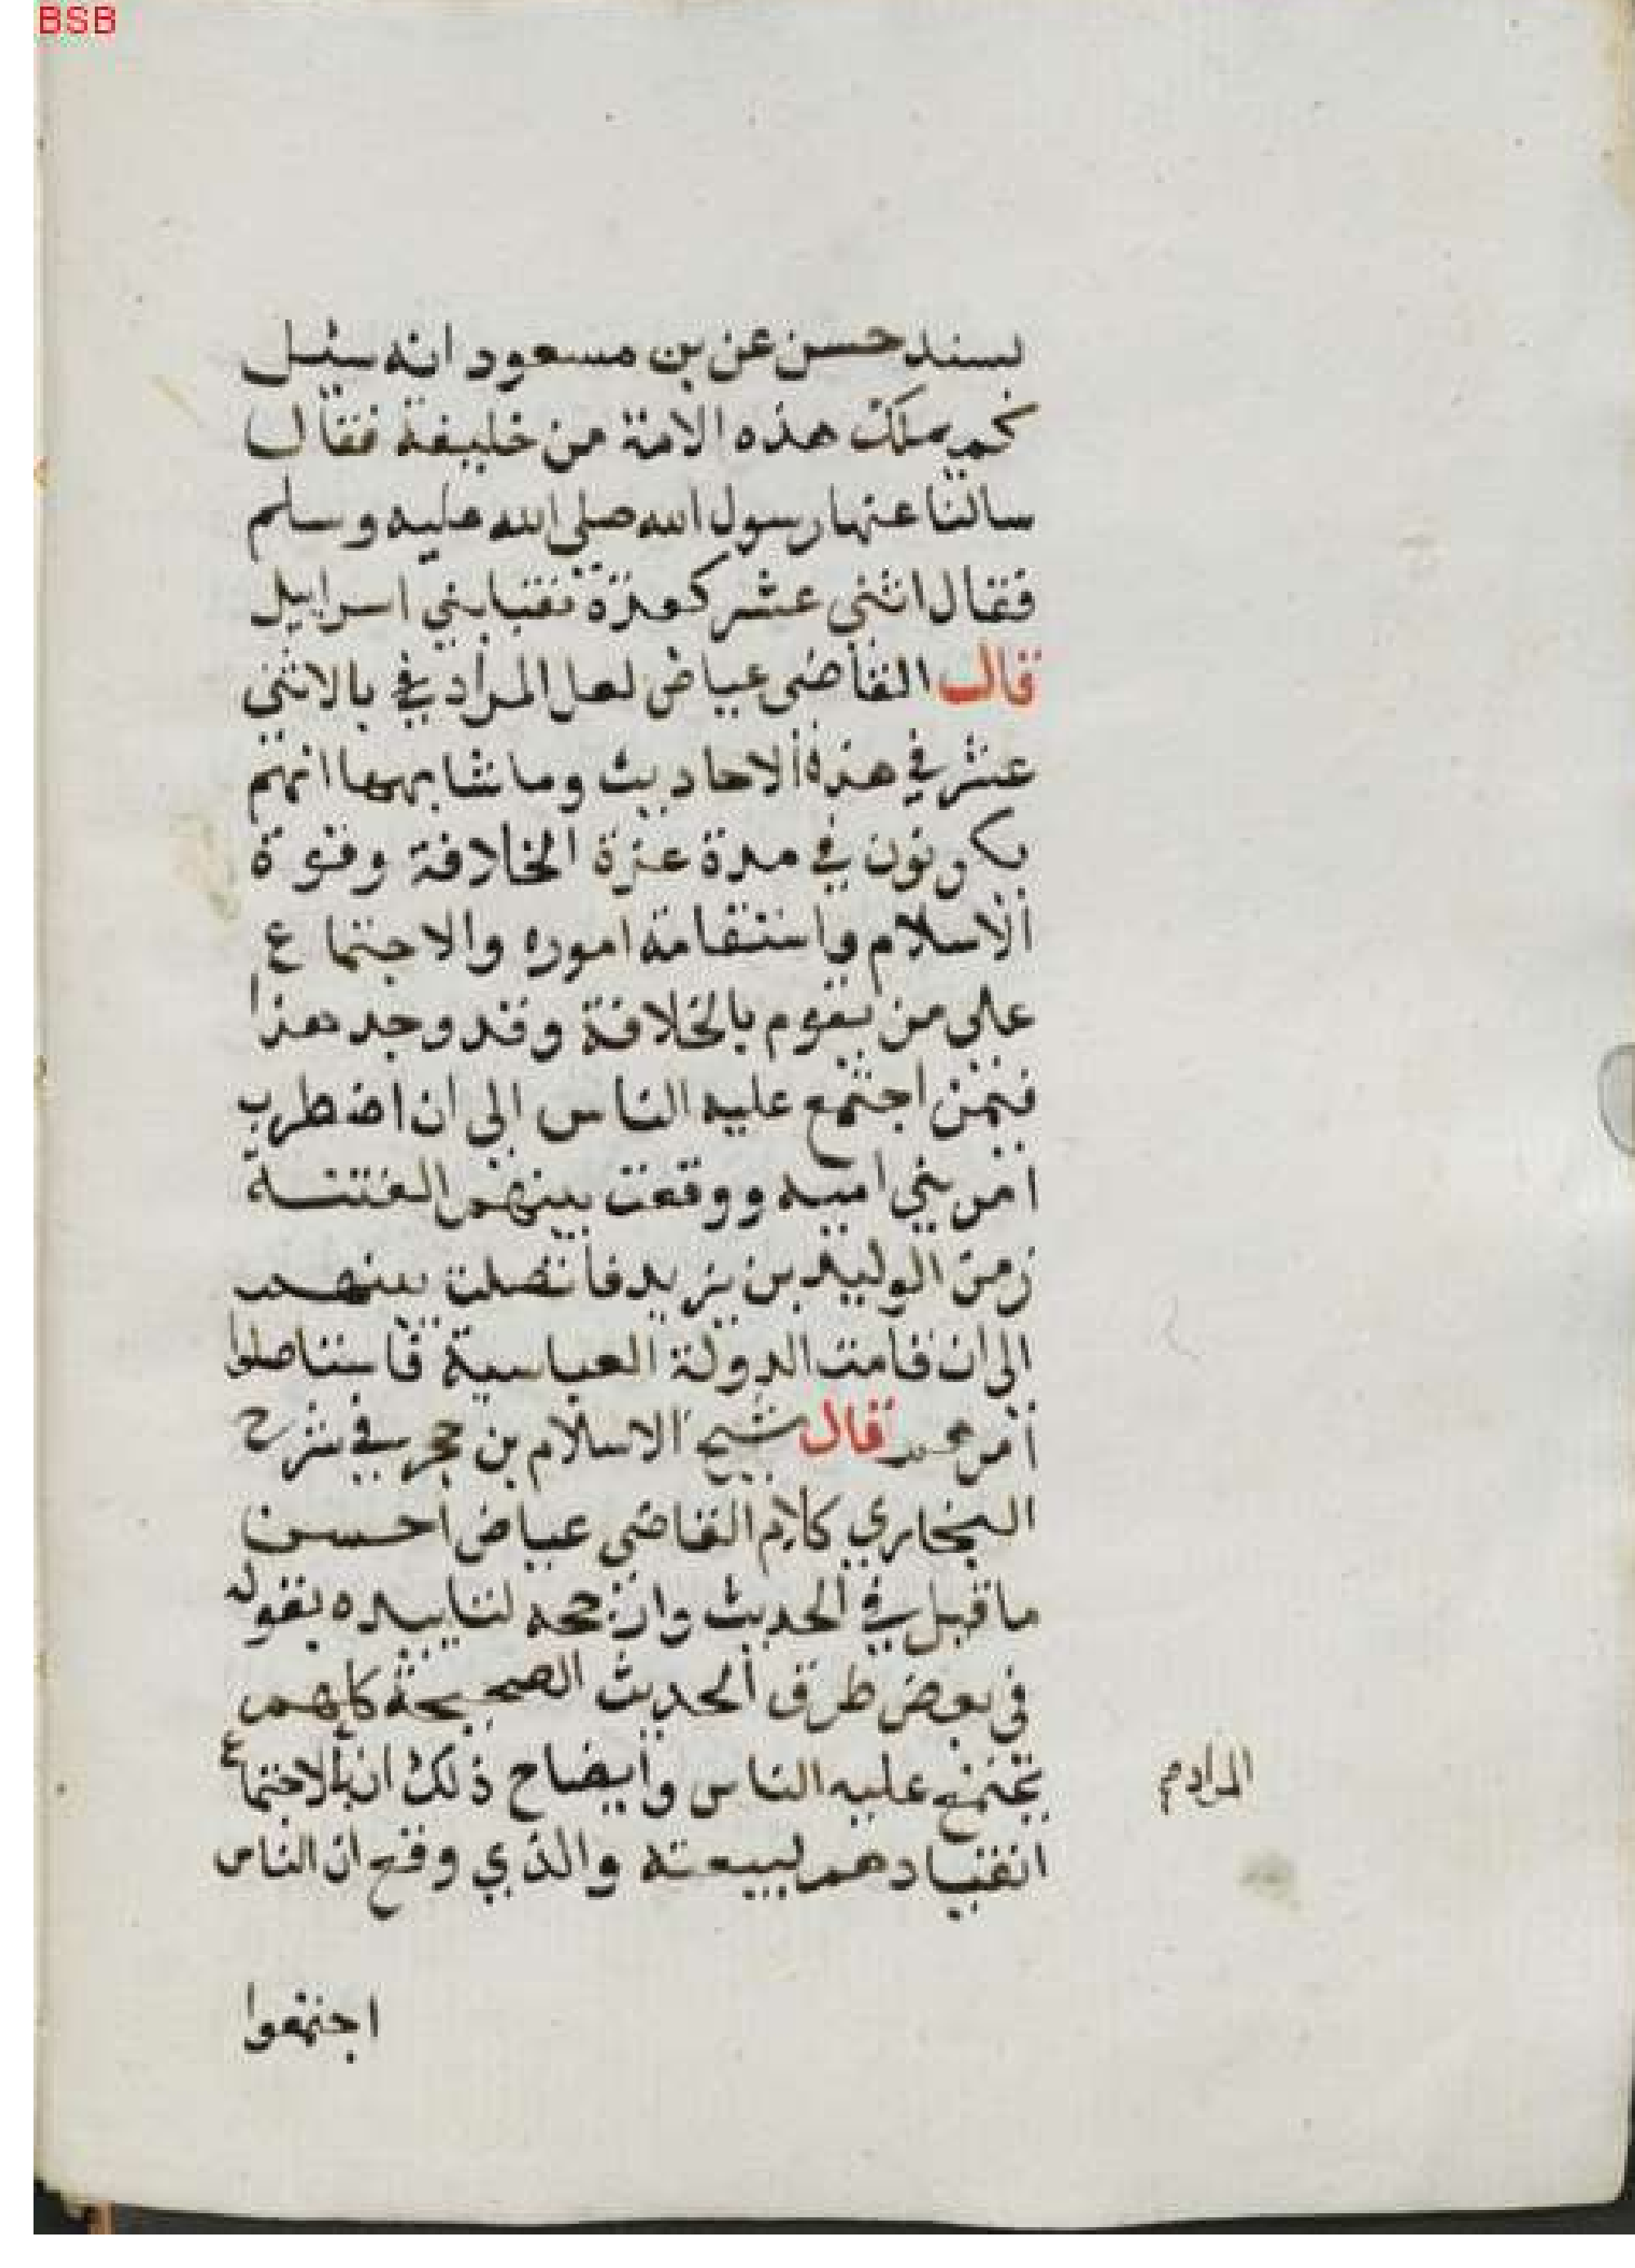 BSB
بسند حسن عن بن مسعود انه سئل
كم يملك هذه الامة من خليفة فقال
سالنا عنها رسول الله صلى الله عليه وسلم
فقال اثنى عشر كعدة نقبا بني اسراييل
قال القاضى عياض لعل المراد في بالاثنى
عشر في هذه الاحاديث وما شابهها انهم
يكونون في مدة عزة الخلافة وقوة
الاسلام واستقامة اموره والاجتماع
على من يقوم بالخلافة وقد وجد هذا
فيمن اجتمع عليه الناس الى ان اضطرب
امر بني اميه ووقعت بينهم الفتنة
زمن الوليد بن يزيد فاتصلت بينهم
الى ان قامت الدولة العباسية فاستاصلوا
امرهم قال شيخ الاسلام بن حجر في شرح
البخاري كلام القاضي عياض احسن
ما قيل في الحديث وارجحه لتاييده بقوله
في بعض طرق الحديث الصحيحة كلهم
يجتمع عليه الناس وأيضاح ذلك ان بالاجتماع
المرادم
انقيادهم لبيعته والذي وقع ان الناس
اجتمعوا